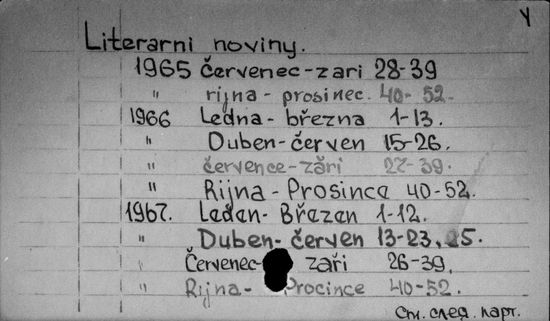 Y
Literarni noviny.
1965 červenec-zari 28-39
" rijna-prosinec. 40-52.
1966 Ledna-března 1-13.
" Duben-červen 15-26.
" července-zăři 27-39.
" Rijna-Prosince 40-52.
1967. Leden-Březen 1-12.
" Duben-červen 13-23, 25.
" Červenec- zaři 26-39.
" Rijna- Procince 40-52.
См. след. карт.